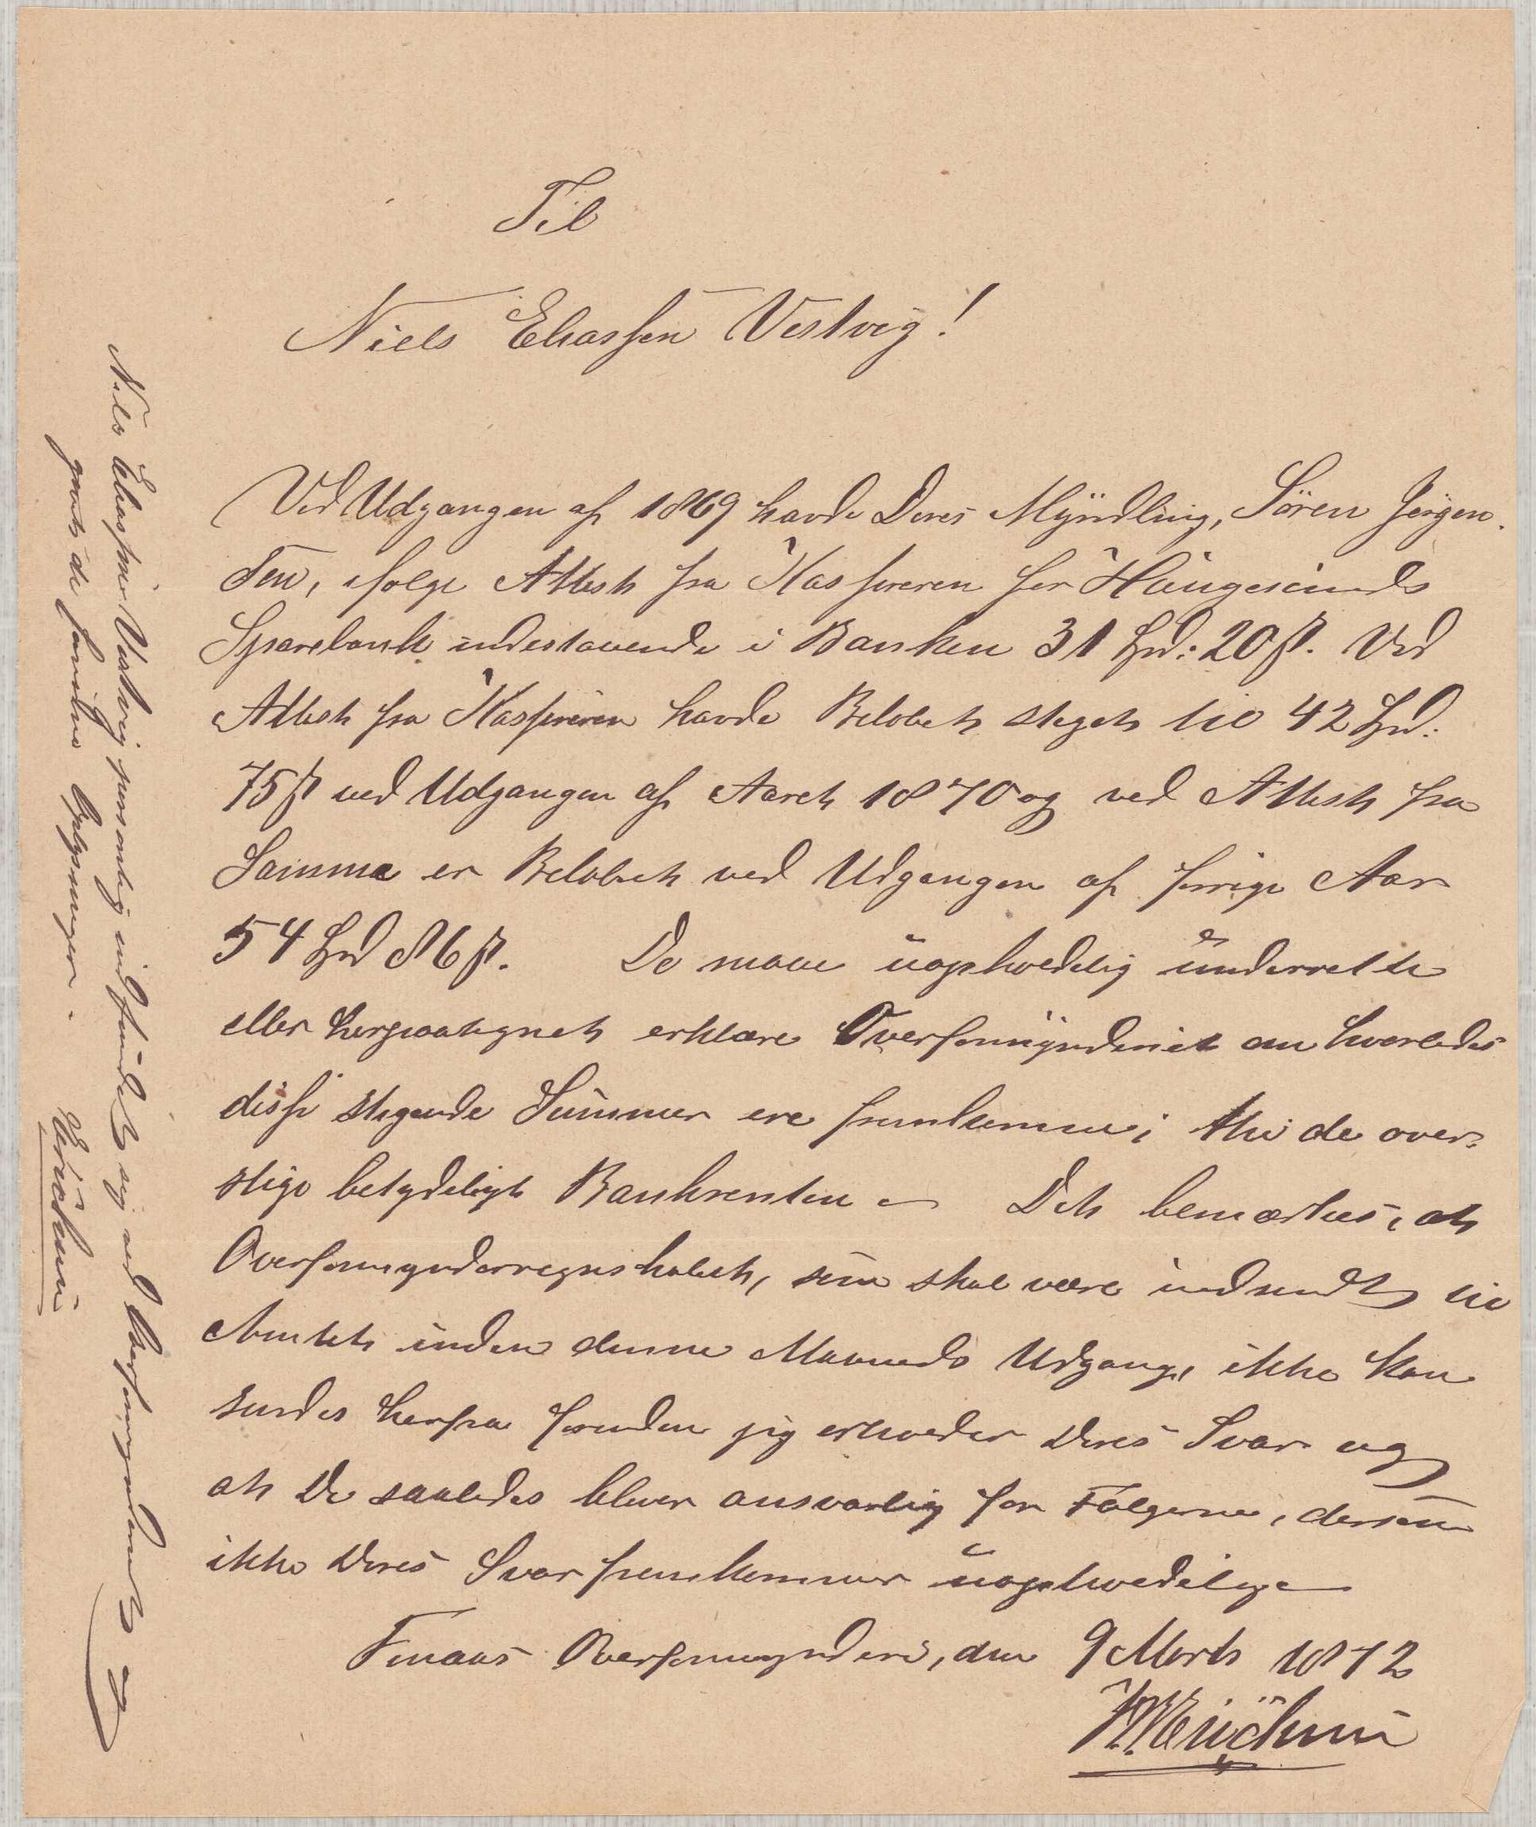 Til
Niels Eliassen Vestvig!
Ved Udgangen af 1869 havde Deres Myndling, Sören Jörgen-
sen, ifølge Attest fra Kassereren for Haugesunds
Sparebank indestaaende i Banken 31 Spd: 20 ß. Ved
Attest fra Kassereren havde Beløbet steget til 42 Spd:
75 ß ved Udgangen af Aaret 1870 og ved Attest fra
Samme er Beløbet ved Udgangen af forrige Aar
54 Spd 86 ß. De maa uopholdelig underrette
eller herpaategnet erklære Overformynderiet om hvorledes
disse stigende Summer ere fremkomne; thi de over-
stige betydeligt Bankrenten – Det bemærkes, at
Overformynderregnskabet, som skal være indsendt til
Amtet inden denne Maaneds Udgang, ikke kan
sendes herfra forinden jeg erholder Deres Svar og
at De saaledes bliver ansvarlig for Følgerne, dersom
ikke Deres Svar fremkommer uopholdelig
Finaas Overformynderi, den 9 Marts 1872
Erichsen
Niels Eliassen Vestvig personlig indfundet sig ved Overformynderiet og
givet de fornødne Oplysninger.
Erichsen